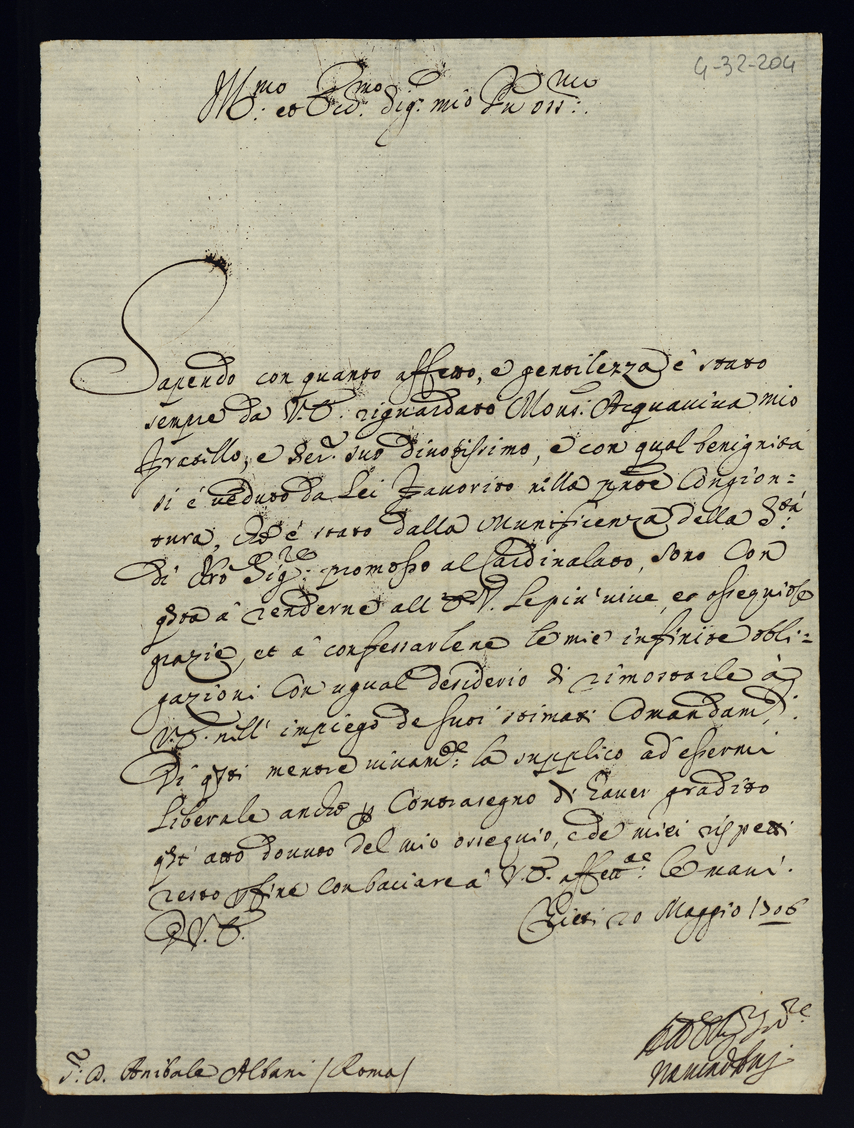 4-32-204
Ill.mo et Ecc.mo Sig.r mio P.ron oss.mo
Sapendo con quanto affetto, e gentilezza è stato
sempre da V.E. riguardato Mons.r Acquaviva mio
fratello, e Ser.r suo divotissimo, e con qual benignità
si è veduto da Lei favorito nella pnte Congion=
tura, ch'è stato dalla Munificenza della S.tà
di Nro Sig.re promosso al Cardinalato, sono con
qsta à renderne all'E.V. le più vive, et ossequiose
grazie, et à confessarlene le mie infinite obli=
gazioni con ugual desiderio di rimostrarle à
V.E. nell'impiego de suoi stimati Comandam.ti.
Di qsti mentre vivam.te la supplico ad essermi
liberale anche p Contrasegno di haver gradito
qst'atto dovuto del mio ossequio, e de miei rispetti
resto p fine con baciare à V.E. affett.te le mani.
D V.E. Chieti 20 Maggio 1706
S: D. Anibale Albani (Roma)